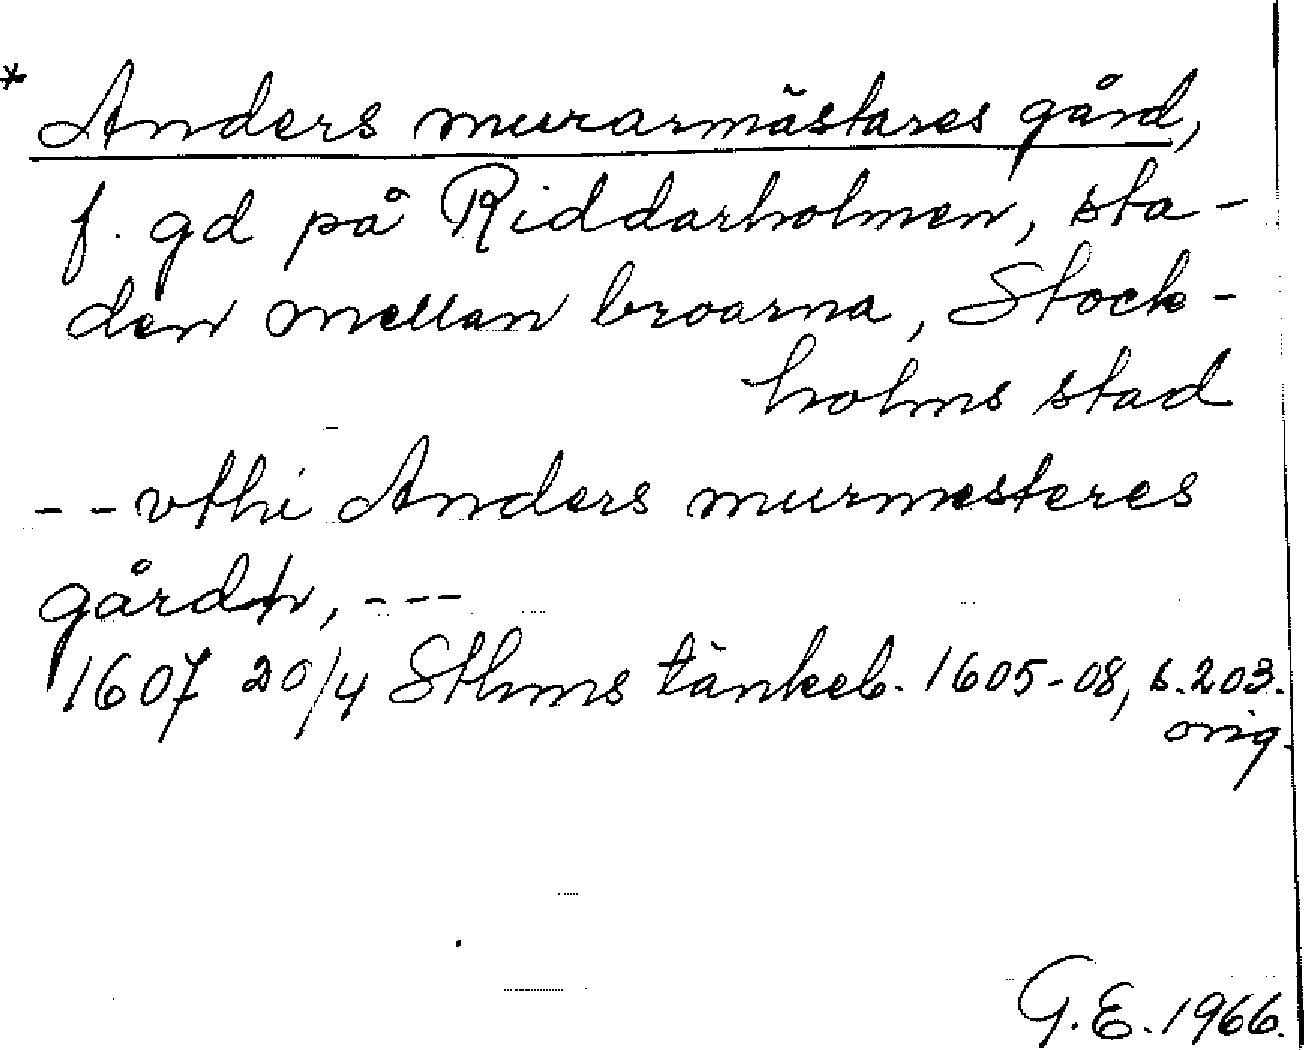 * Anders murarmästares gård,
f. gd på Riddarholmen, sta-
den mellan broarna, Stock-
holms stad
- - vthi Anders murmesteres
gårdh, - - -
1607 20/4 Sthms tänkeb. 1605-08, s. 203.
orig.
G. E. 1966.